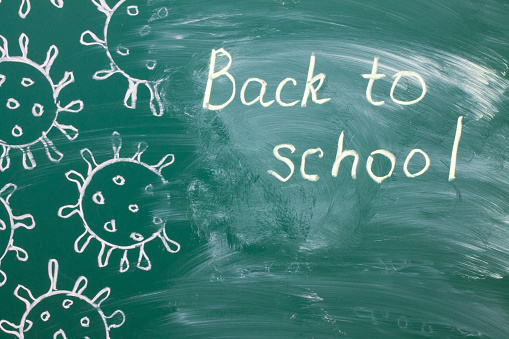 Back to
school